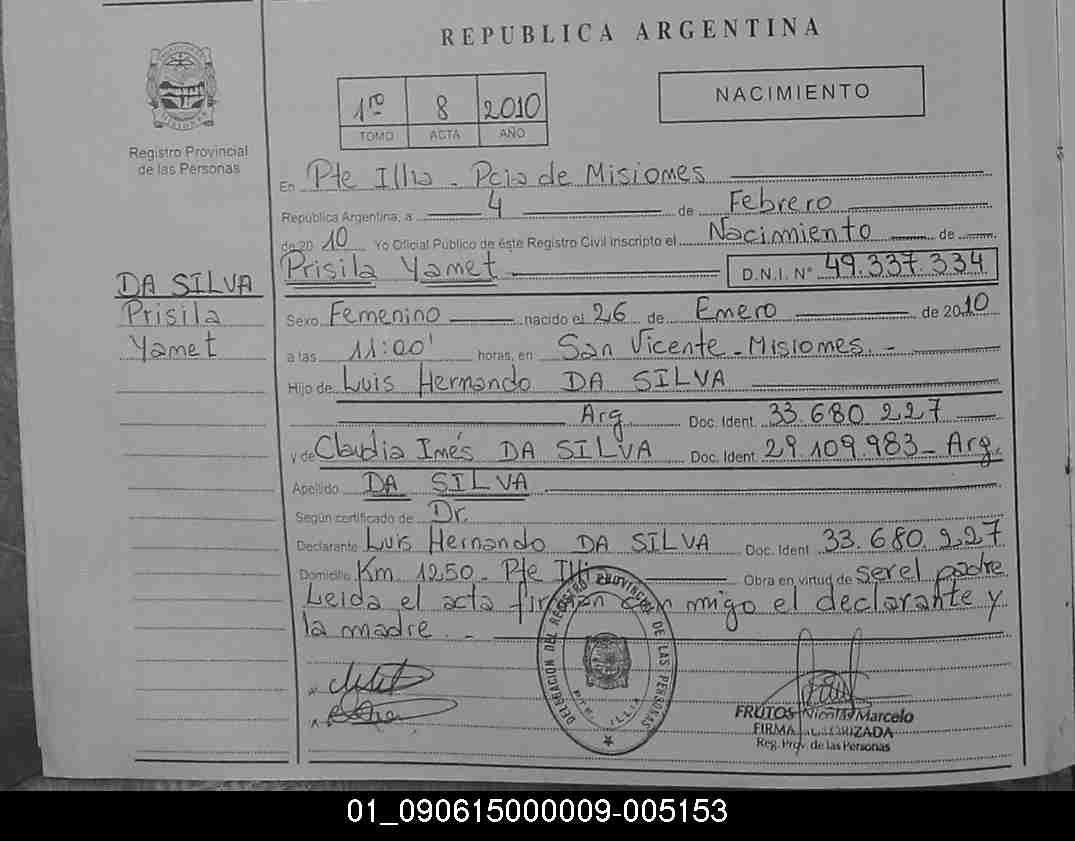 REPUBLICA ARGENTINA
1ro 8 2010
TOMO ACTA AÑO
NACIMIENTO
Registro Provincial
de las Personas
En Pte Illia - Pcia de Misiones
República Argentina, a 4 de Febrero
de 20 10 Yo Oficial Público de éste Registro Civil inscripto el Nacimiento de
Prisila Yamet D.N.I. Nº 49.337.334
DA SILVA
Prisila
Yamet
Sexo Femenino nacido el 26 de Enero de 2010
a las 11:00' horas, en San Vicente - Misiones. -
Hijo de Luis Hernando DA SILVA
Arg Doc. Ident. 33.680.227
y de Claudia Inés DA SILVA Doc. Ident. 29.109.983 - Arg.
Apellido DA SILVA
Según certificado de Dr.
Declarante Luis Hernando DA SILVA Doc. Ident 33.680.227
Domicilio Km 1250 - Pte Illia Obra en virtud de ser el padre
Leida el acta firman con migo el declarante y
la madre. -
DELEGACION DEL REGISTRO PROVINCIAL DE LAS PERSONAS
PTE. ILLIA
FRUTOS Nicolás Marcelo
FIRMA AUTORIZADA
Reg. Prov. de las Personas
01_090615000009-005153